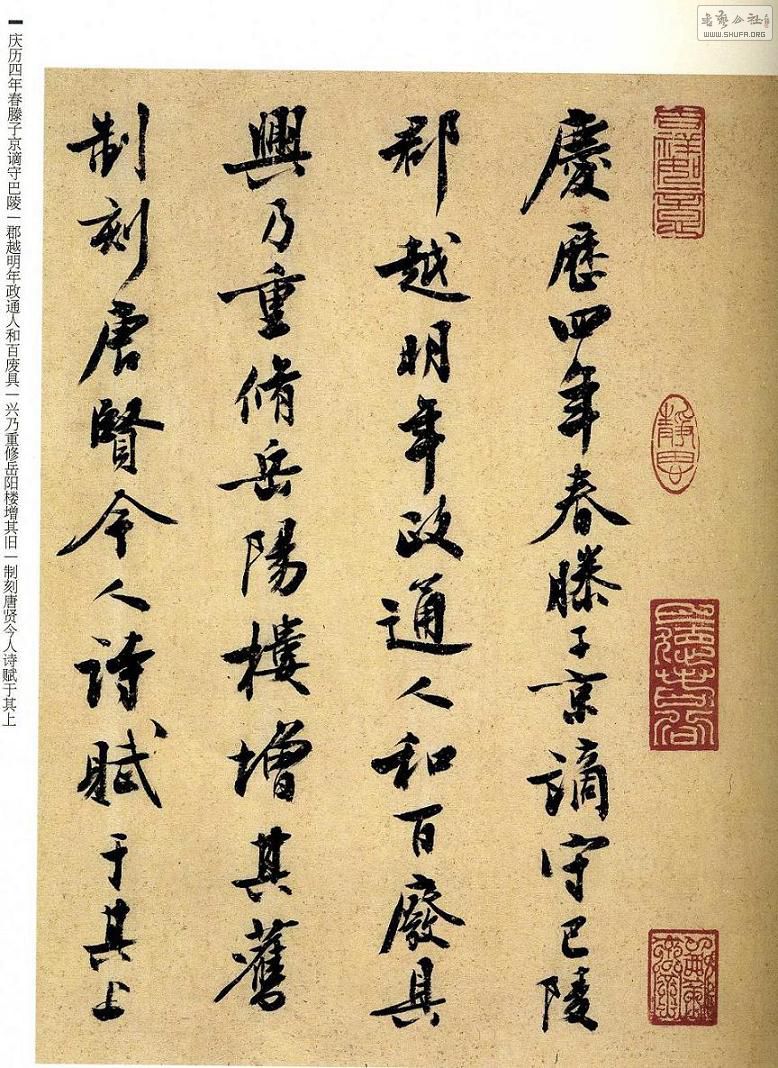 慶歷四年春滕子京謫守巴陵
郡越明年政通人和百廢具
興乃重脩岳陽樓增其舊
制刻唐賢今人詩賦于其上
庆历四年春滕子京谪守巴陵|郡越明年政通人和百废具|兴乃重修岳阳楼增其旧|制刻唐贤今人诗赋于其上
WWW.SHUFA.ORG